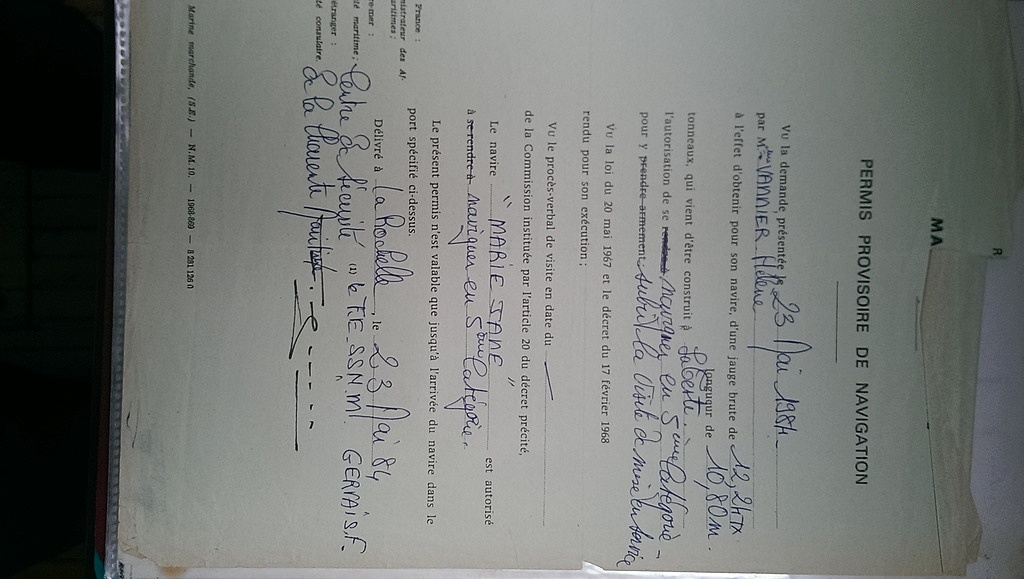 R
MA
PERMIS PROVISOIRE DE NAVIGATION
Vu la demande présentée le 23 Mai 1984
par Mme VANNIER Hélène
à l'effet d'obtenir pour son navire, d'une jauge brute de 12,24 TX
longueur de 10,80 m.
tonneaux, qui vient d'être construit à
l'autorisation de se rendre à naviguer en 5ème Catégorie -
pour y prendre armement subir la visite de mise en service
Vu la loi du 20 mai 1967 et le décret du 17 février 1968
rendu pour son exécution ;
Vu le procès-verbal de visite en date du —
de la Commission instituée par l'article 20 du décret précité,
Le navire " MARIE JANE " est autorisé
à se rendre à naviguer en 5ème Catégorie.
Le présent permis n'est valable que jusqu'à l'arrivée du navire dans le
port spécifié ci-dessus.
Délivré à La Rochelle, le 23 Mai 84
France :
nistrateur des Af-
aritimes ;
re-mer :
té maritime ;
étranger :
té consulaire.
Centre de Sécurité (1) L'TE.SS.N.M. GERVAIS.F.
de la Charente Maritime.
Marine marchande. (S.E.) — N.M. 10. — 1968-869 — 8 281 126 0